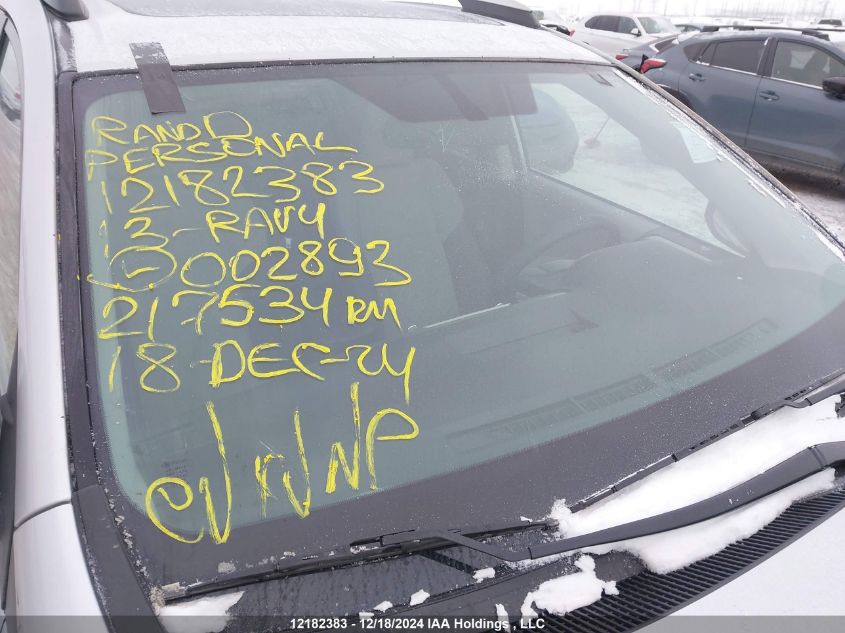 RAND D
PERSONAL
12182383
13-RAV4
002893
217534 KM
18-DEC-24
NP
12182383 - 12/18/2024 IAA Holdings, LLC